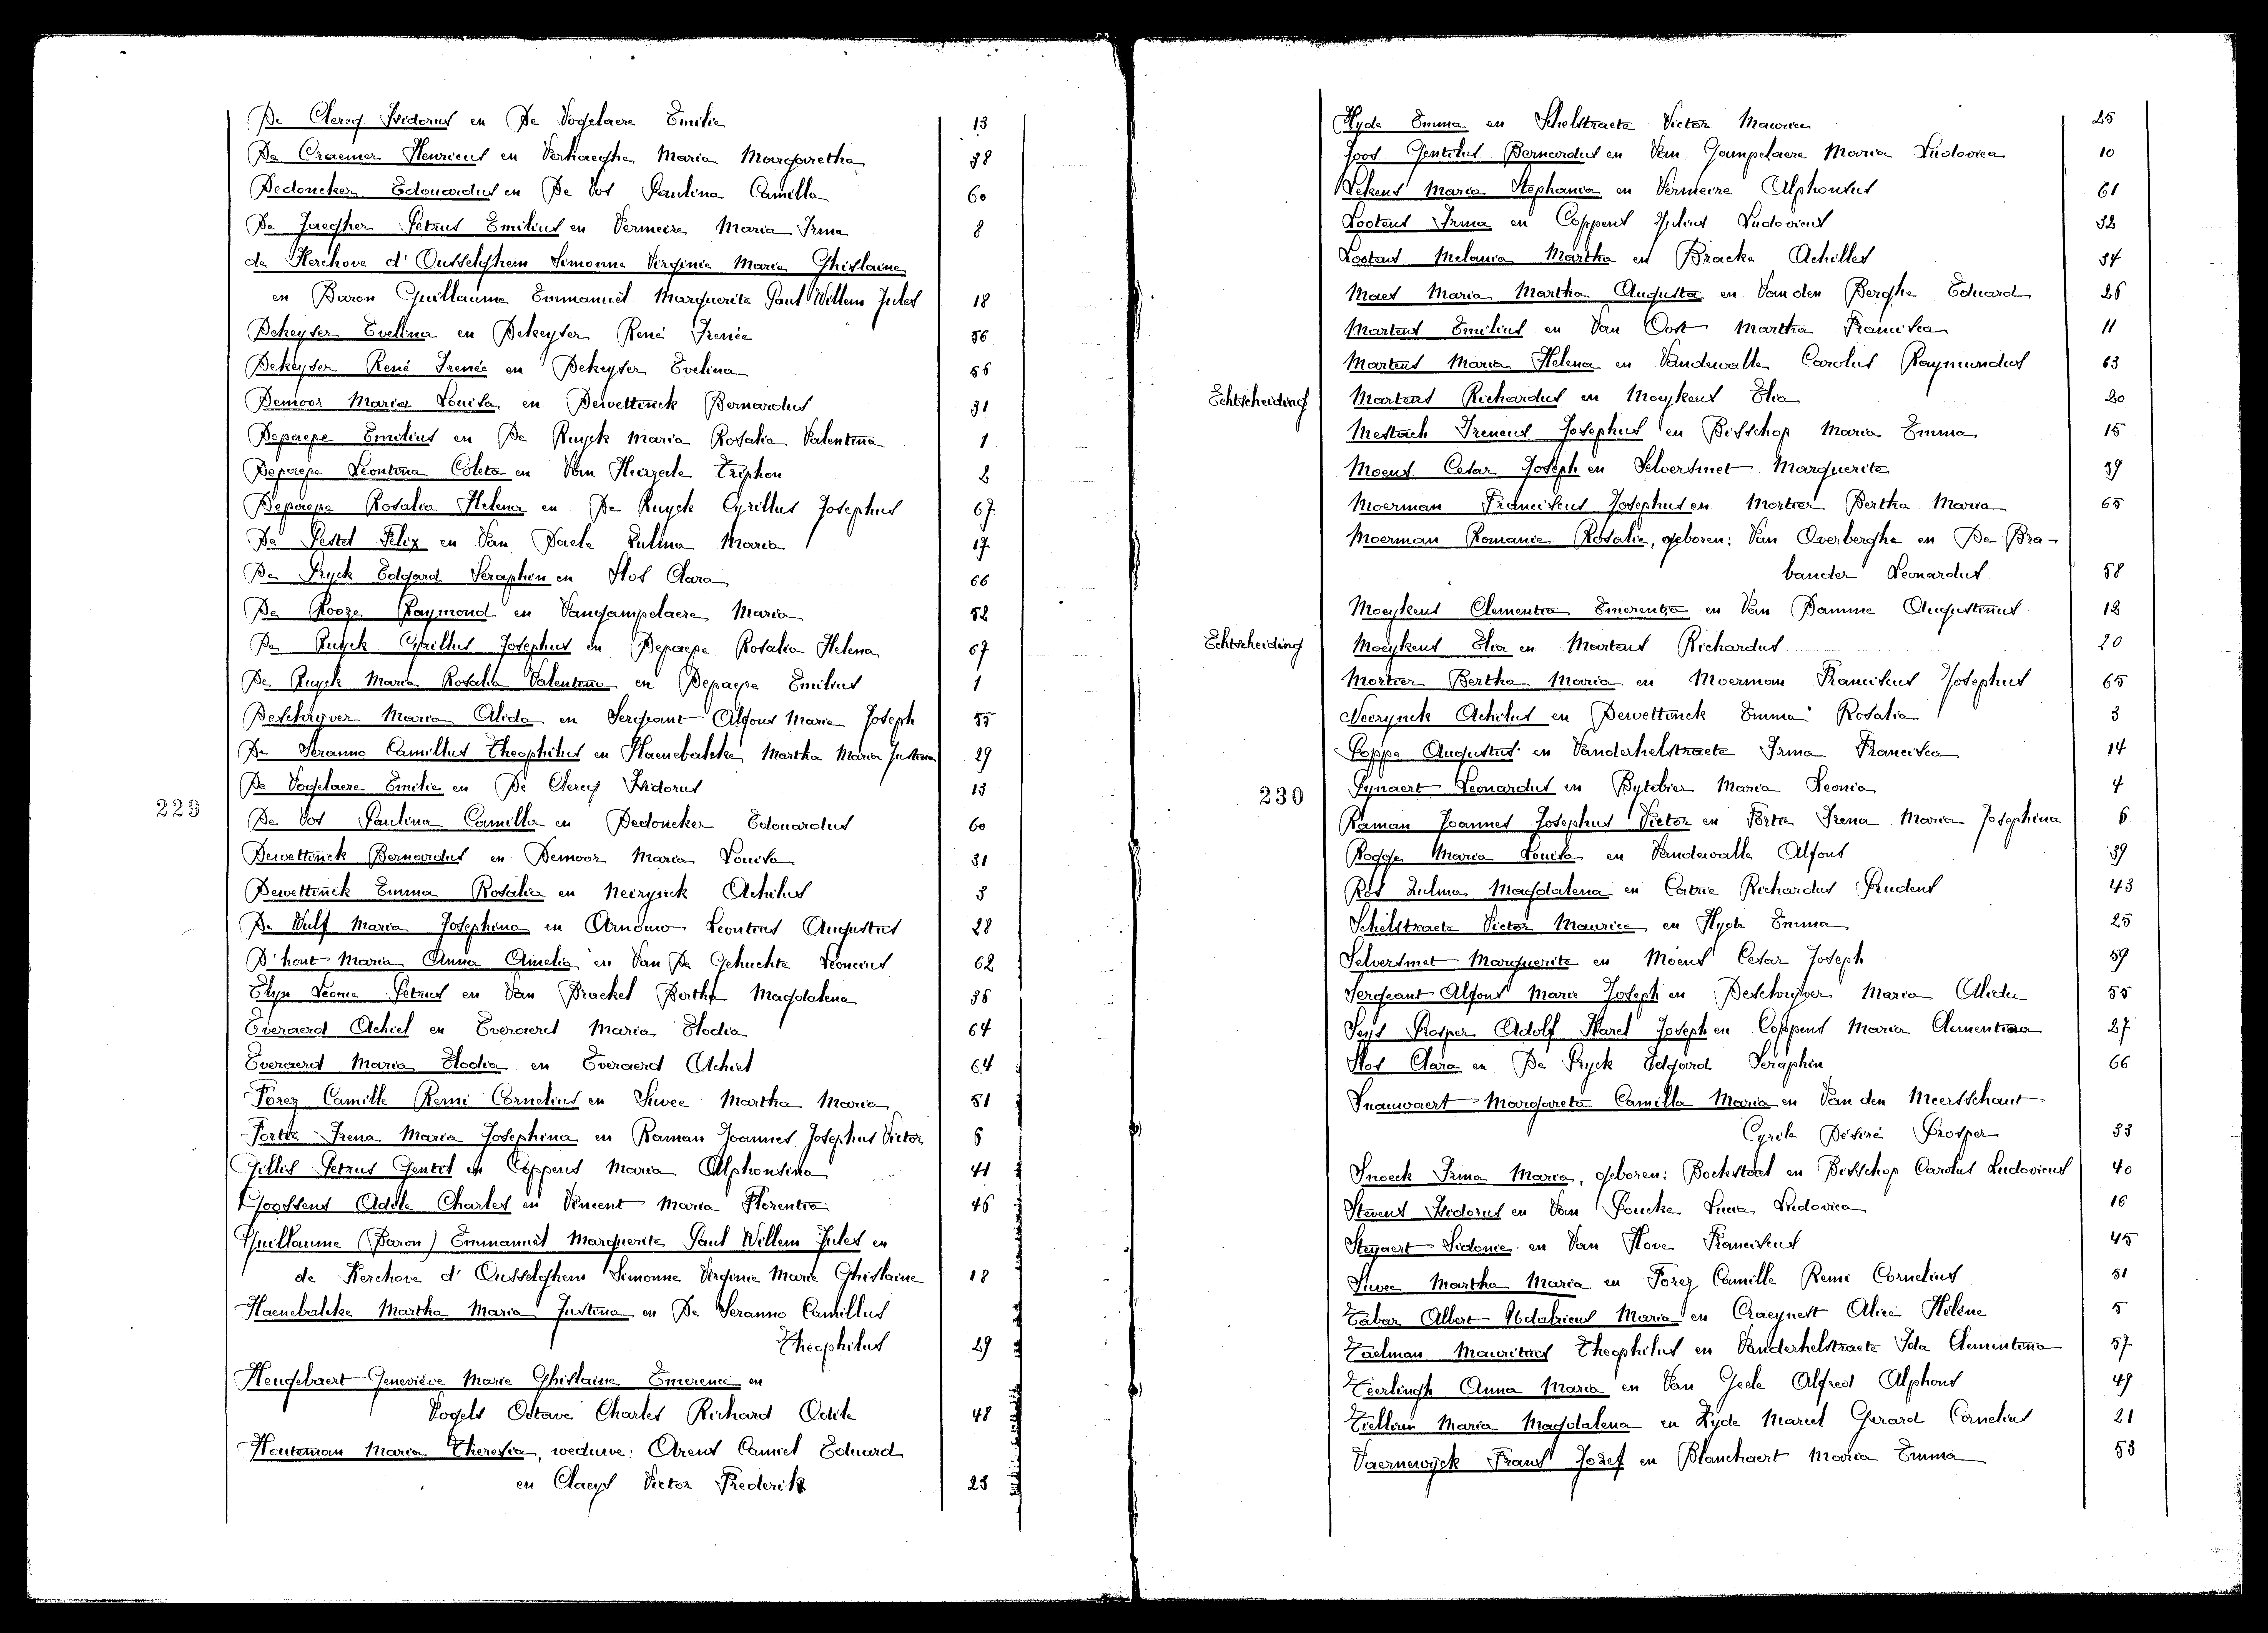 De Clercq Isidorus en De Vogelaere Emilie 13
De Craemer Henricus en Verhaeghe Maria Margaretha 38
Dedoncker Edouardus en De Vos Paulina Camilla 60
De Jaegher Petrus Emilius en Vermeire Maria Irma 8
de Kerchove d'Ousselghem Simonne Virginie Marie Ghislaine
en Baron Guillaume Emmanuël Marguerite Paul Willem Jules 18
Dekeyser Evelina en Dekeyser René Irenée 56
Dekeyser René Irenée en Dekeyser Evelina 56
Demoor Maria Louisa en Dewettinck Bernardus 31
Depaepe Emilius en De Ruyck Maria Rosalia Valentina 1
Depaepe Leontina Coleta en Van Heirzeele Triphon 2
Depaepe Rosalia Helena en De Ruyck Cyrillus Josephus 67
De Pestel Felix en Van Daele Zulma Maria 17
De Pryck Edgard Seraphin en Slos Clara 66
De Rooze Raymond en Vangampelaere Maria 52
De Ruyck Cyrillus Josephus en Depaepe Rosalia Helena 67
De Ruyck Maria Rosalia Valentina en Depaepe Emilius 1
Deschryver Maria Alida en Sergeant Alfons Maria Joseph 55
De Seranno Camillus Theophilus en Haenebalcke Martha Maria Justina 29
De Vogelaere Emilie en De Clercq Isidorus 13
229
De Vos Paulina Camilla en Dedoncker Edouardus 60
Dewettinck Bernardus en Demoor Maria Louisa 31
Dewettinck Emma Rosalia en Neirynck Achilus 3
De Wulf Maria Josephina en Arnouw Leontius Augustus 28
D'hont Maria Anna Amelia en Van De Gehuchte Leoncius 62
Elyn Leonce Petrus en Van Brackel Bertha Magdalena 36
Everaerd Achiel en Everaerd Maria Elodia 64
Everaerd Maria Elodia en Everaerd Achiel 64
Forez Camille Remi Cornelius en Suvee Martha Maria 51
Fortie Irena Maria Josephina en Raman Joannes Josephus Victor 6
Gillis Petrus Gentil en Coppens Maria Alphonsina 41
Goossens Adile Charles en Vincent Maria Florentia 46
Guillaume (Baron) Emmanuël Marguerite Paul Willem Jules en
de Kerchove d'Ousselghem Simonne Virginie Marie Ghislaine 18
Haenebalcke Martha Maria Justina en De Seranno Camillus
Theophilus 29
Heugebaert Geneviève Marie Ghislaine Emerence en
Vogels Octave Charles Richard Odile 48
Heuteman Maria Theresia, weduwe: Arens Camiel Eduard
en Claeys Victor Frederik 23
Hyde Emma en Schelstraete Victor Maurice 25
Joos Gentilus Bernardus en Van Gampelaere Maria Ludovica 10
Lekens Maria Stephania en Vermeire Alphonsus 61
Lootens Irma en Coppens Julius Ludovicus 32
Lootens Melania Martha en Bracke Achilles 34
Maes Maria Martha Augusta en Van den Berghe Eduard 26
Martens Emilius en Van Oost Martha Francisca 11
Martens Maria Helena en Vandewalle Carolus Raymundus 63
Echtscheiding Martens Richardus en Moeykens Elia 20
Mestach Ireneus Josephus en Bisschop Maria Emma 15
Moens Cesar Joseph en Selversmet Marguerite 59
Moerman Franciscus Josephus en Mortier Bertha Maria 65
Moerman Romanie Rosalie, geboren: Van Overberghe en De Bra-
bander Leonardus 58
Moeykens Clementia Emerentia en Van Damme Augustinus 12
Echtscheiding Moeykens Elia en Martens Richardus 20
Mortier Bertha Maria en Moerman Franciscus Josephus 65
Neirynck Achilus en Dewettinck Emma Rosalia 3
Poppe Augustus en Vanderhelstraete Irma Francisca 14
230
Pynaert Leonardus en Bytebier Maria Leonia 4
Raman Joannes Josephus Victor en Fortie Irena Maria Josephina 6
Rogge Maria Louisa en Vandewalle Alfons 39
Ros Zulma Magdalena en Cabrie Richardus Prudens 43
Schelstraete Victor Maurice en Hyde Emma 25
Selversmet Marguerite en Moens Cesar Joseph 59
Sergeant Alfons Marie Joseph en Deschryver Maria Alida 55
Seys Prosper Adolf Karel Joseph en Coppens Maria Clementina 27
Slos Clara en De Pryck Edgard Seraphin 66
Snauwaert Margareta Camilla Maria en Van den Meersschaut
Cyrile Désiré Prosper 33
Snoeck Irma Maria, geboren: Bockstael en Bisschop Carolus Ludovicus 40
Stevens Isidorus en Van Poucke Lucia Ludovica 16
Steyaert Sidonie en Van Hove Franciscus 45
Suvee Martha Maria en Forez Camille Remi Cornelius 51
Tabar Albert Udalricus Maria en Craeynest Alice Hélène 5
Taelman Mauritius Theophilus en Vanderhelstraete Ida Clementina 57
Teerlingh Anna Maria en Van Geele Alfred Alphons 49
Tiellin Maria Magdalena en Hyde Marcel Gerard Cornelius 21
Vaernewyck Frans Jozef en Blanchaert Maria Emma 53